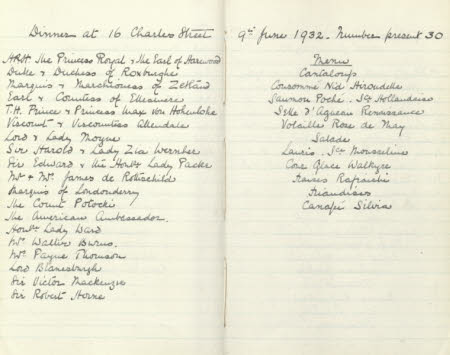 Dinner at 16 Charles Street
HRH The Princess Royal & The Earl of Harewood
Duke & Duchess of Roxburghe
Marquis & Marchioness of Zetland
Earl & Countess of Ellesmere
T.H. Prince & Princess Max Von Hohenlohe
Viscount & Viscountess Allendale
Lord & Lady Moyne
Sir Harold & Lady Zia Wernher
Sir Edward & Hble Lady Packe
Mr & Mrs James de Rothschild
Marquis of Londonderry
The Count Potocki
The American Ambassador
Honble Lady Ward
Mr Walter Burns.
Mrs Payne Thomson
Lord Blanesburgh
Sir Victor Mackenzie
Sir Robert Horne
9th June 1932. Number present 30
Menu
Cantaloup
Consomme Nid Hirondelle
Saumon Poché. Sce Hollandaise
Selle d'Agneau Renaissance
Volaille Rose de May
Salade
Lauris. Sce Mousseline
Glace Walkyre
Fraises Rafraichi
Friandises
Canapé Silvia